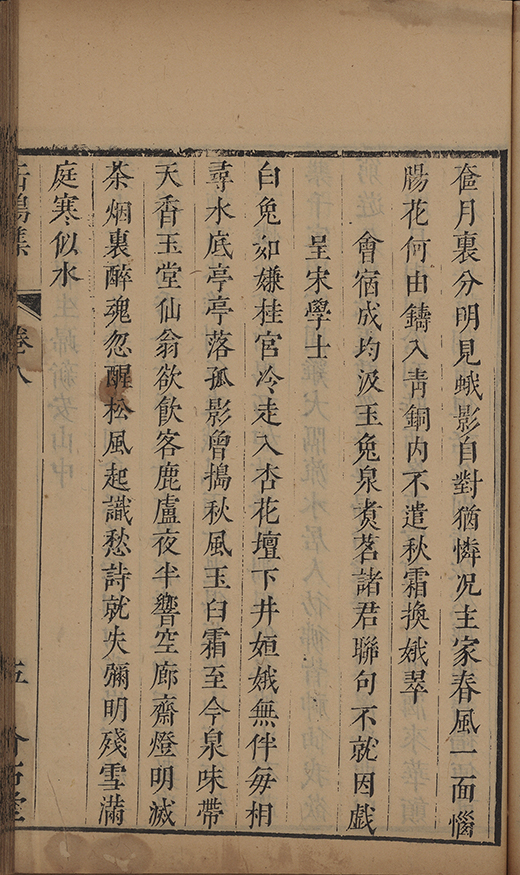 奩月裏分明見蛾影自對猶憐况主家春風一面惱
腸花何由鑄入青銅内不遣秋霜換娥翠
會宿成均汲玉兔泉煑茗諸君聯句不就因戯
呈宋學士
白兔如嫌桂宮冷走入杏花壇下井姮娥無伴每相
尋水底亭亭落孤影曾搗秋風玉臼霜至今泉味帶
天香玉堂仙翁欲飲客鹿盧夜半響空廊齋燈明滅
茶烟裏醉魂忽醒松風起識愁詩就失彌明殘雪滿
庭寒似水
卷八
五